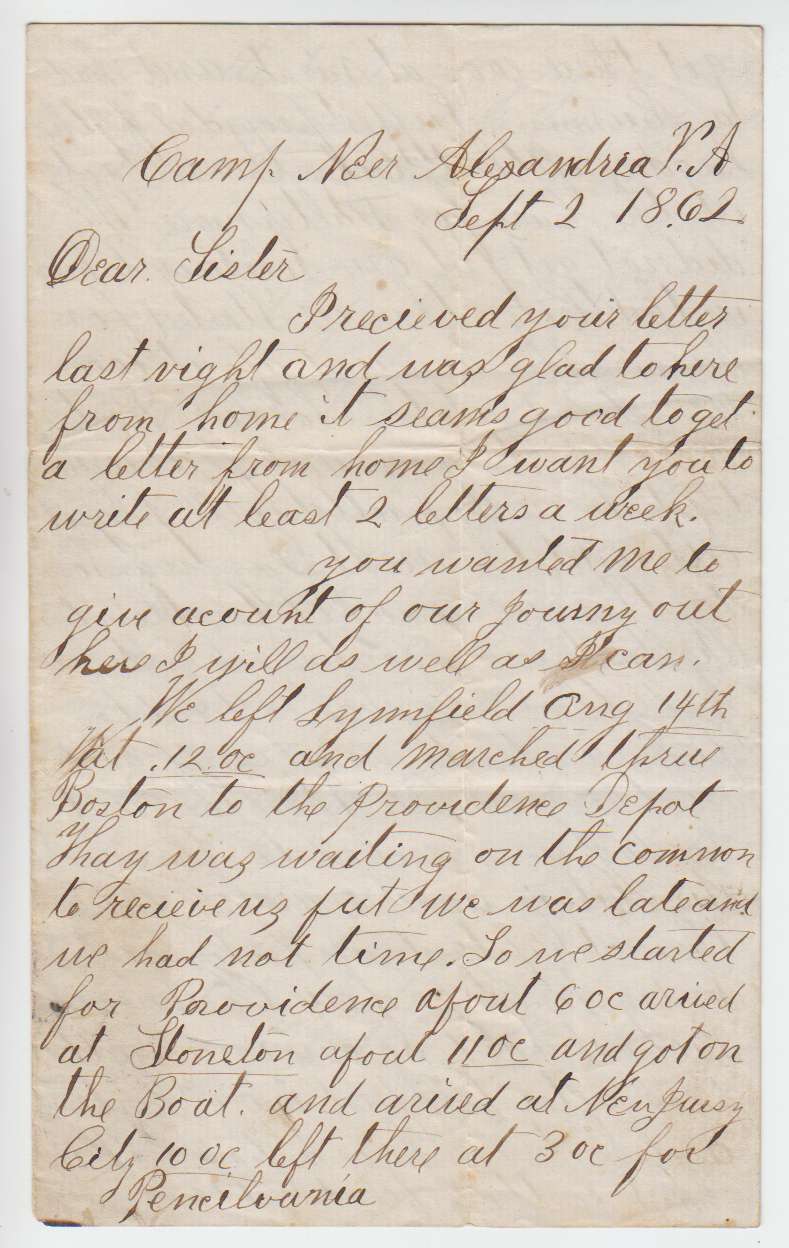 Camp NEer Alexandria V.A
Sept 2 18.62
Dear. Sister
I recieved your letter
last night and was glad to here
from home it seams good to get
a letter from home I want you to
write at least 2 letters a week.
you wanted me to
give acount of our Journy out
here I will as well as I can.
We left Lynnfield Aug 14th
at .12 oc and marched thrue
Boston to the Providence Depot
Thay was waiting on the common
to recieve us but we was late and
we had not time. So we started
for Providence about 6 oc arived
at Stoneton about 11 oc and got on
the Boat. and arived at NEw Jersy
City 10 oc left there at 3 oc for
Pencilvania